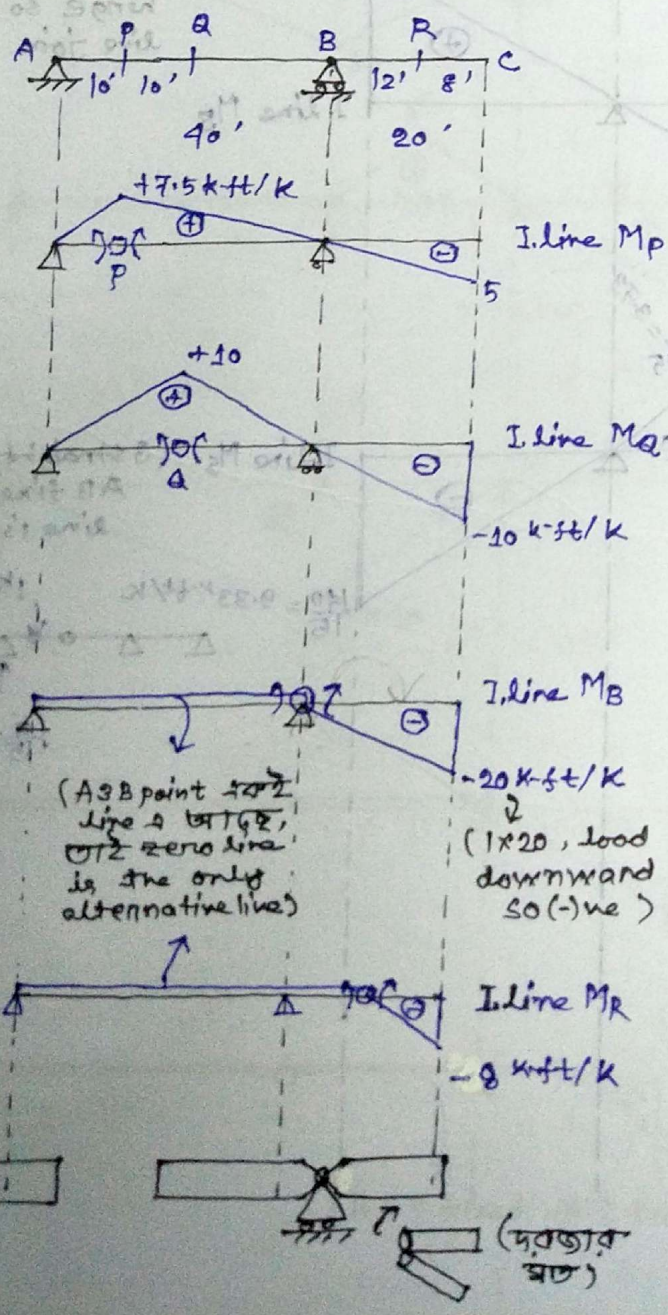 A P Q B R C
10' 10' 12' 8'
40' 20'
+7.5 k-ft/k
+
P
-
I. line MP
5
+10
+
Q
-
I. line MQ
-10 k-ft/k
I. line MB
-
-20 k-ft/k
(A ও B point একই
line এ আছে,
তাই zero line
is the only
alternative line)
(1×20, load
downward
so (-)ve)
I. Line MR
-
-8 k-ft/k
(দরজার
মত)